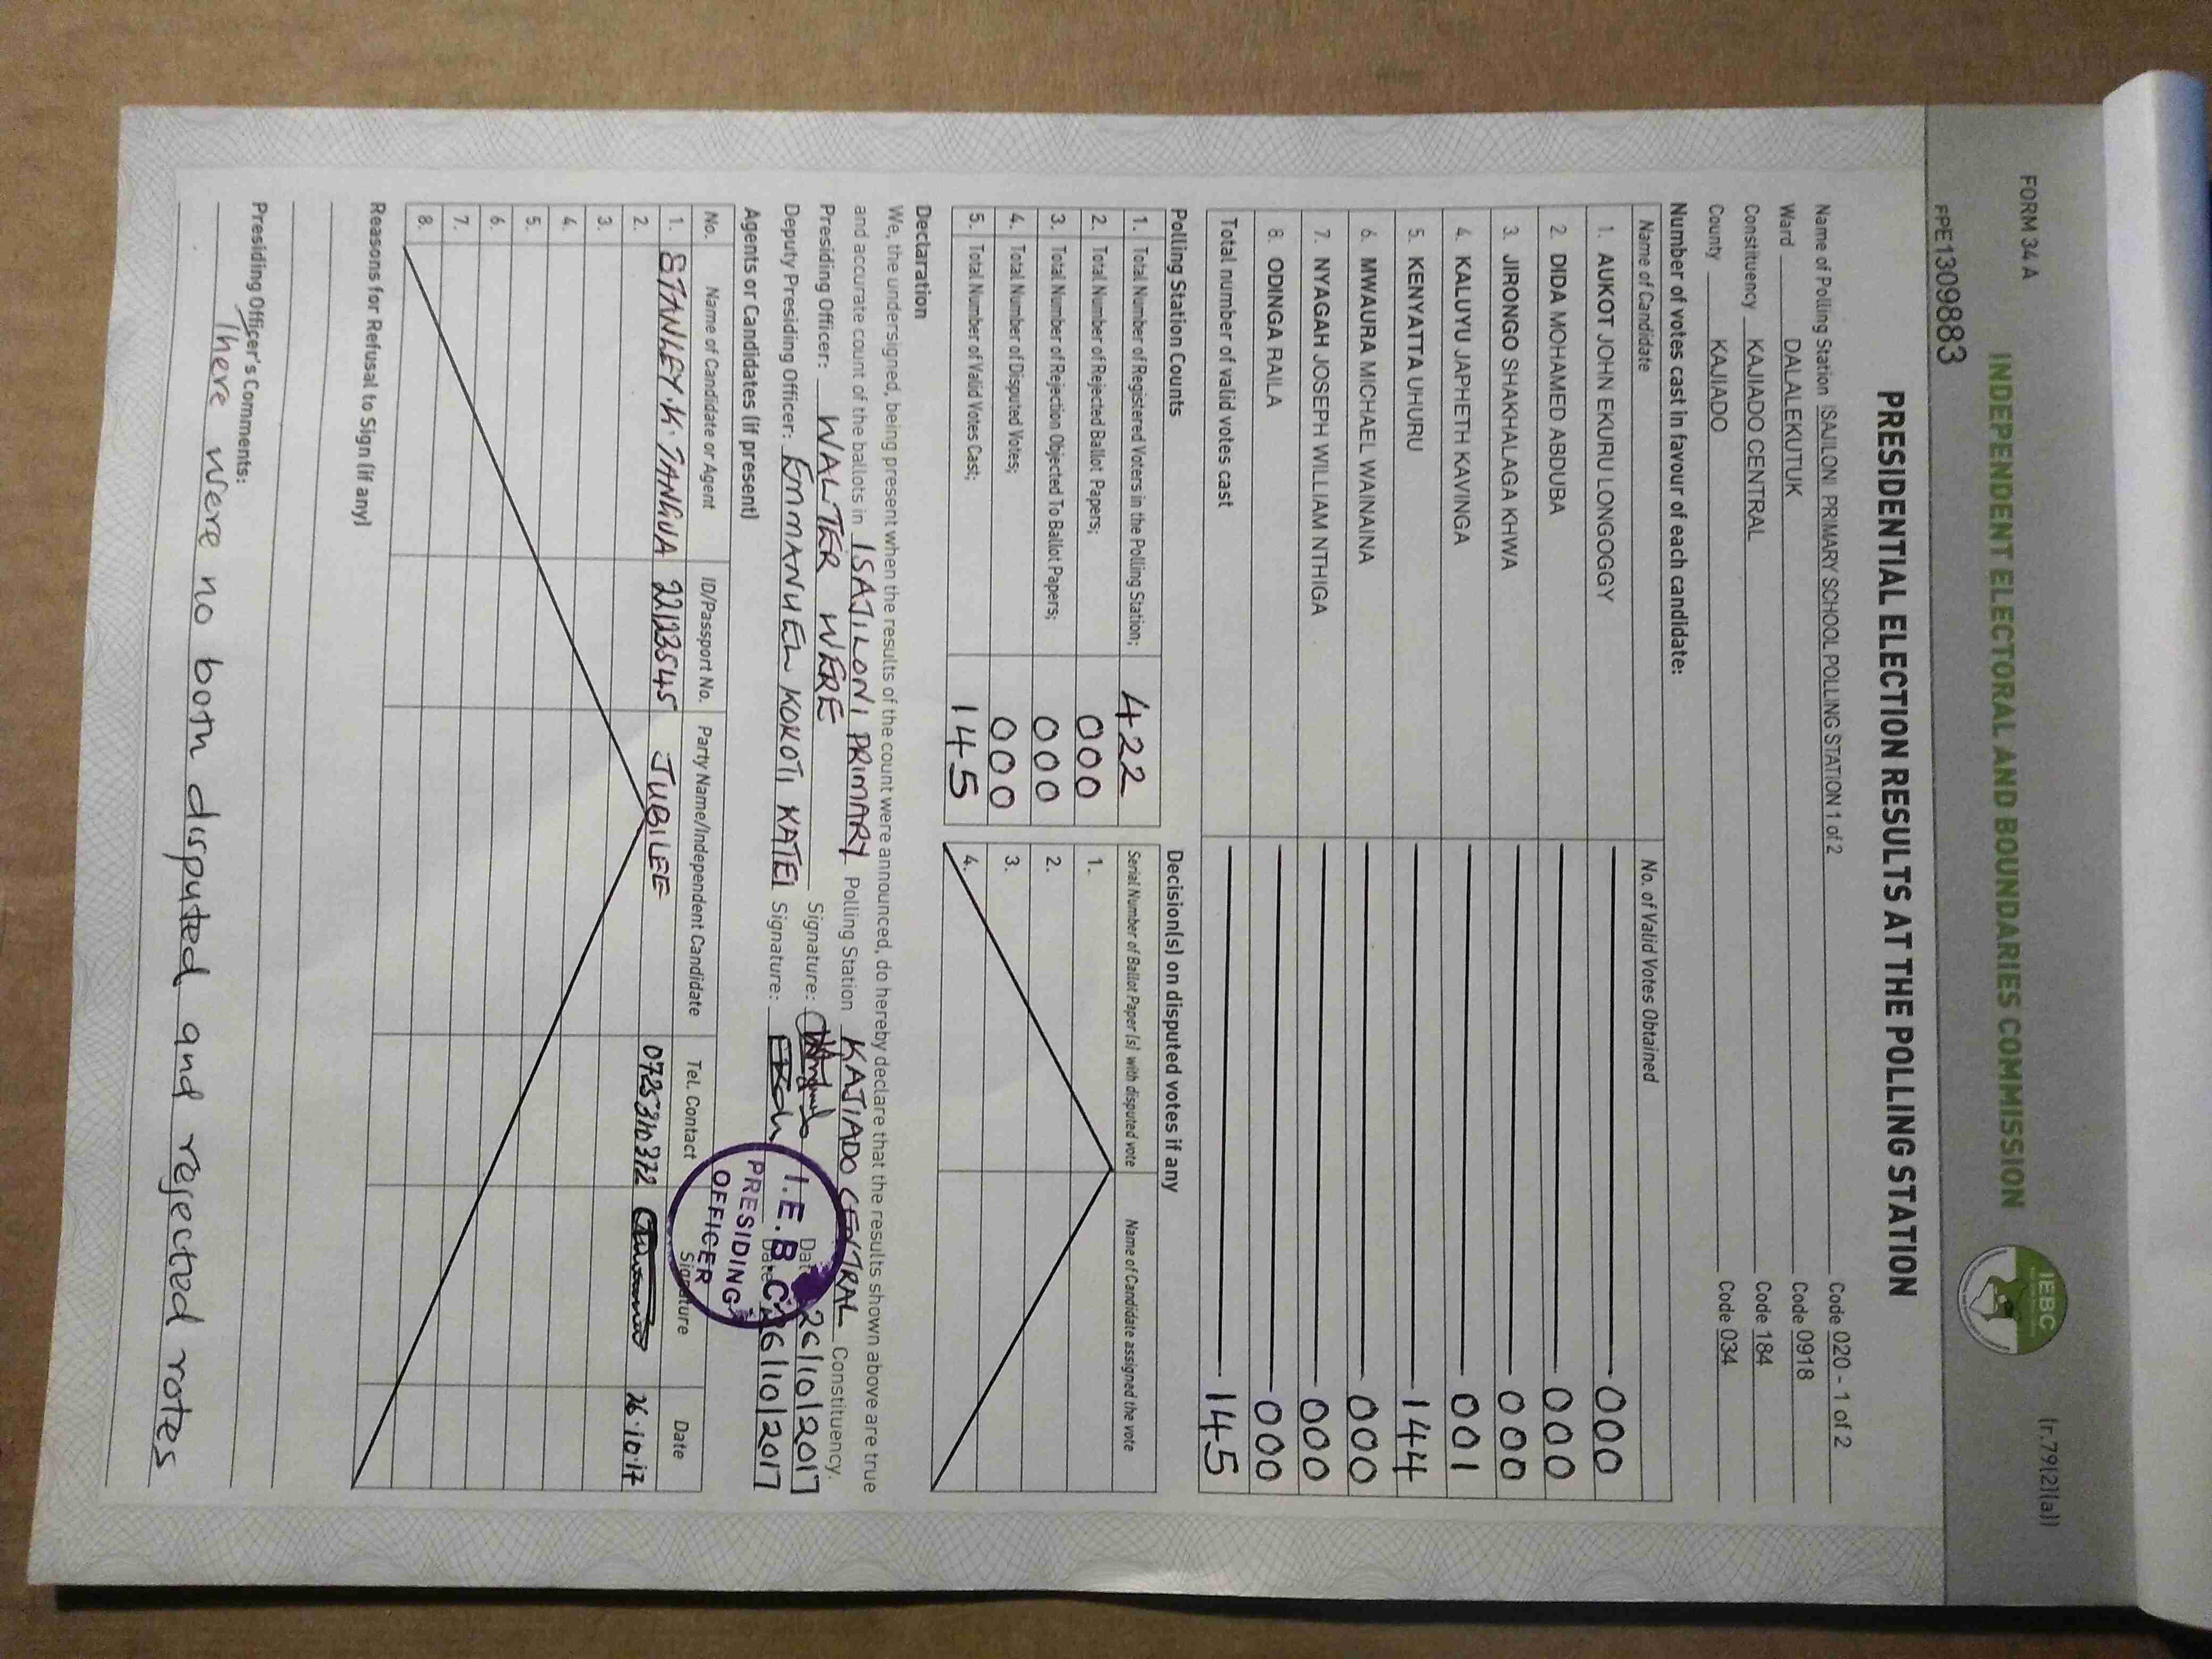 FORM 34 A
(r.79(2)(a))
INDEPENDENT ELECTORAL AND BOUNDARIES COMMISSION
IEBC
FPE1309883
PRESIDENTIAL ELECTION RESULTS AT THE POLLING STATION
Name of Polling Station ISAJILONI PRIMARY SCHOOL POLLING STATION 1 of 2 Code 020 - 1 of 2
Ward DALALEKUTUK Code 0918
Constituency KAJIADO CENTRAL Code 184
County KAJIADO Code 034
Number of votes cast in favour of each candidate:
Name of Candidate No. of Valid Votes Obtained
1. AUKOT JOHN EKURU LONGOGGY 000
2. DIDA MOHAMED ABDUBA 000
3. JIRONGO SHAKHALAGA KHWA 000
4. KALUYU JAPHETH KAVINGA 001
5. KENYATTA UHURU 144
6. MWAURA MICHAEL WAINAINA 000
7. NYAGAH JOSEPH WILLIAM NTHIGA 000
8. ODINGA RAILA 000
Total number of valid votes cast 145
Polling Station Counts Decision(s) on disputed votes if any
1. Total Number of Registered Voters in the Polling Station; 422 Serial Number of Ballot Paper (s) with disputed vote Name of Candidate assigned the vote
2. Total Number of Rejected Ballot Papers; 000 1.
3. Total Number of Rejection Objected To Ballot Papers; 000 2.
4. Total Number of Disputed Votes; 000 3.
5. Total Number of Valid Votes Cast; 145 4.
Declaration
We, the undersigned, being present when the results of the count were announced, do hereby declare that the results shown above are true
and accurate count of the ballots in ISAJILONI PRIMARY Polling Station KAJIADO CENTRAL Constituency.
Presiding Officer: WALTER WERE Signature: Date 26/10/2017
Deputy Presiding Officer: EMMANUEL KOKOTI KATEI Signature: Date 26/10/2017
I.E.B.C
PRESIDING
OFFICER
Agents or Candidates (if present)
No. Name of Candidate or Agent ID/Passport No. Party Name/Independent Candidate Tel. Contact Signature Date
1. STANLEY.K.TANGUA 22123545 JUBILEE 0725310372 26.10.17
2.
3.
4.
5.
6.
7.
8.
Reasons for Refusal to Sign (if any)
Presiding Officer's Comments:
There were no both disputed and rejected votes